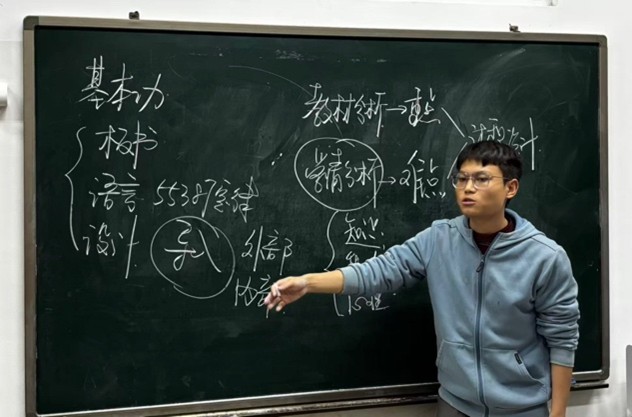 基本功
板书
语言 55387定律
设计
导入 外部
内部
教材分析→重点
学情分析→难点
知识